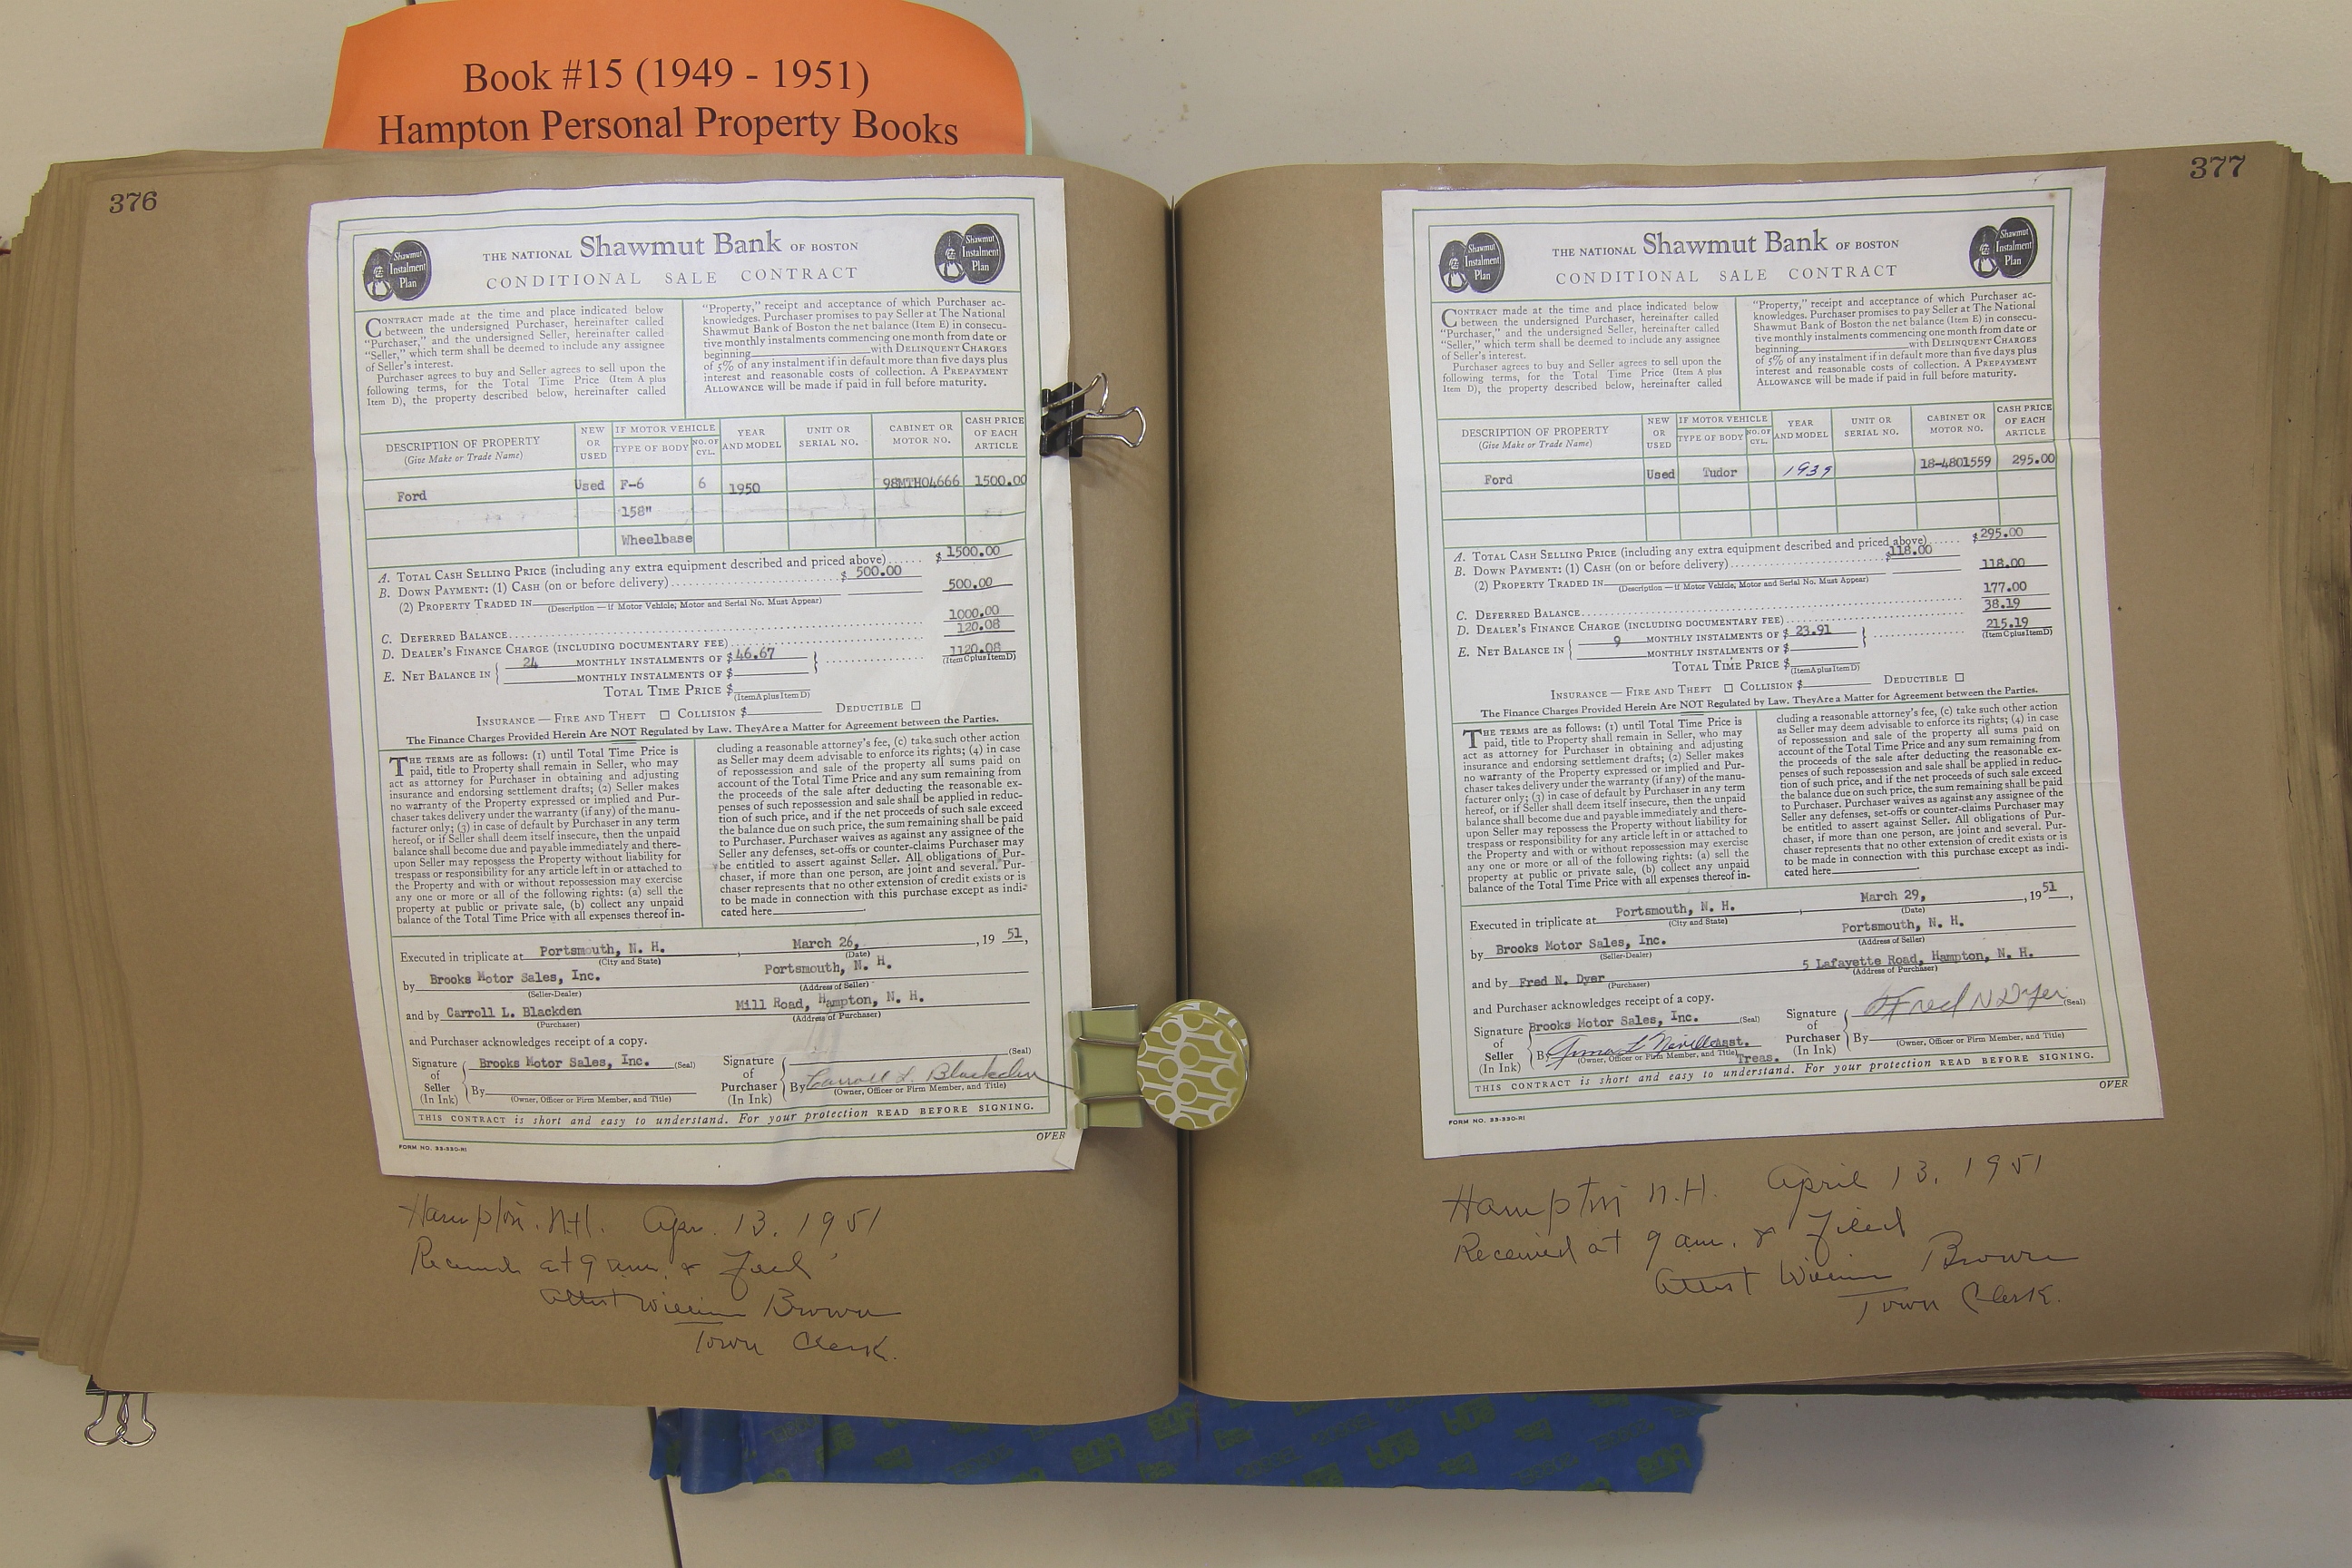 Book #15 (1949 - 1951)
Hampton Personal Property Books
376
Shawmut
Instalment
Plan
THE NATIONAL Shawmut Bank OF BOSTON
CONDITIONAL SALE CONTRACT
Shawmut
Instalment
Plan
CONTRACT made at the time and place indicated below
between the undersigned Purchaser, hereinafter called
"Purchaser," and the undersigned Seller, hereinafter called
"Seller," which term shall be deemed to include any assignee
of Seller's interest.
Purchaser agrees to buy and Seller agrees to sell upon the
following terms, for the Total Time Price (Item A plus
Item D), the property described below, hereinafter called
"Property," receipt and acceptance of which Purchaser ac-
knowledges. Purchaser promises to pay Seller at The National
Shawmut Bank of Boston the net balance (Item E) in consecu-
tive monthly instalments commencing one month from date or
beginning with DELINQUENT CHARGES
of 5% of any instalment if in default more than five days plus
interest and reasonable costs of collection. A PREPAYMENT
ALLOWANCE will be made if paid in full before maturity.
DESCRIPTION OF PROPERTY
(Give Make or Trade Name)
NEW
OR
USED
IF MOTOR VEHICLE
TYPE OF BODY
NO. OF
CYL.
YEAR
AND MODEL
UNIT OR
SERIAL NO.
CABINET OR
MOTOR NO.
CASH PRICE
OF EACH
ARTICLE
Ford Used F-6 6 1950 98MTH04666 1500.00
158"
Wheelbase
A. TOTAL CASH SELLING PRICE (including any extra equipment described and priced above)...... $ 1500.00
B. DOWN PAYMENT: (1) CASH (on or before delivery)............ $ 500.00
(2) PROPERTY TRADED IN 500.00
(Description — if Motor Vehicle; Motor and Serial No. Must Appear)
C. DEFERRED BALANCE............ 1000.00
D. DEALER'S FINANCE CHARGE (INCLUDING DOCUMENTARY FEE)............ 120.08
E. NET BALANCE IN { 24 MONTHLY INSTALMENTS OF $ 46.67 } ............ 1120.08
MONTHLY INSTALMENTS OF $
(Item C plus Item D)
TOTAL TIME PRICE $
(Item A plus Item D)
INSURANCE — FIRE AND THEFT ☐ COLLISION $ DEDUCTIBLE ☐
The Finance Charges Provided Herein Are NOT Regulated by Law. They Are a Matter for Agreement between the Parties.
THE TERMS ARE AS FOLLOWS: (1) until Total Time Price is
paid, title to Property shall remain in Seller, who may
act as attorney for Purchaser in obtaining and adjusting
insurance and endorsing settlement drafts; (2) Seller makes
no warranty of the Property expressed or implied and Pur-
chaser takes delivery under the warranty (if any) of the manu-
facturer only; (3) in case of default by Purchaser in any term
hereof, or if Seller shall deem itself insecure, then the unpaid
balance shall become due and payable immediately and there-
upon Seller may repossess the Property without liability for
trespass or responsibility for any article left in or attached to
the Property and with or without repossession may exercise
any one or more or all of the following rights: (a) sell the
property at public or private sale, (b) collect any unpaid
balance of the Total Time Price with all expenses thereof in-
cluding a reasonable attorney's fee, (c) take such other action
as Seller may deem advisable to enforce its rights; (4) in case
of repossession and sale of the property all sums paid on
account of the Total Time Price and any sum remaining from
the proceeds of the sale after deducting the reasonable ex-
penses of such repossession and sale shall be applied in reduc-
tion of such price, and if the net proceeds of such sale exceed
the balance due on such price, the sum remaining shall be paid
to Purchaser. Purchaser waives as against any assignee of the
Seller any defenses, set-offs or counter-claims Purchaser may
be entitled to assert against Seller. All obligations of Pur-
chaser, if more than one person, are joint and several. Pur-
chaser represents that no other extension of credit exists or is
to be made in connection with this purchase except as indi-
cated here
Executed in triplicate at Portsmouth, N. H. , March 26, , 19 51,
(City and State) (Date)
by Brooks Motor Sales, Inc. Portsmouth, N. H.
(Seller-Dealer) (Address of Seller)
and by Carroll L. Blackden Mill Road, Hampton, N. H.
(Purchaser) (Address of Purchaser)
and Purchaser acknowledges receipt of a copy.
Signature
of
Seller
(In Ink)
Brooks Motor Sales, Inc. (Seal)
By
(Owner, Officer or Firm Member, and Title)
Signature
of
Purchaser
(In Ink)
(Seal)
By Carroll L. Blackden
(Owner, Officer or Firm Member, and Title)
THIS CONTRACT is short and easy to understand. For your protection READ BEFORE SIGNING.
OVER
FORM NO. 23-330-RI
Hampton. N.H. Apr. 13, 1951
Received at 9 am. & Filed
Attest William Brown
Town Clerk.
377
Shawmut
Instalment
Plan
THE NATIONAL Shawmut Bank OF BOSTON
CONDITIONAL SALE CONTRACT
Shawmut
Instalment
Plan
CONTRACT made at the time and place indicated below
between the undersigned Purchaser, hereinafter called
"Purchaser," and the undersigned Seller, hereinafter called
"Seller," which term shall be deemed to include any assignee
of Seller's interest.
Purchaser agrees to buy and Seller agrees to sell upon the
following terms, for the Total Time Price (Item A plus
Item D), the property described below, hereinafter called
"Property," receipt and acceptance of which Purchaser ac-
knowledges. Purchaser promises to pay Seller at The National
Shawmut Bank of Boston the net balance (Item E) in consecu-
tive monthly instalments commencing one month from date or
beginning with DELINQUENT CHARGES
of 5% of any instalment if in default more than five days plus
interest and reasonable costs of collection. A PREPAYMENT
ALLOWANCE will be made if paid in full before maturity.
DESCRIPTION OF PROPERTY
(Give Make or Trade Name)
NEW
OR
USED
IF MOTOR VEHICLE
TYPE OF BODY
NO. OF
CYL.
YEAR
AND MODEL
UNIT OR
SERIAL NO.
CABINET OR
MOTOR NO.
CASH PRICE
OF EACH
ARTICLE
Ford Used Tudor 1939 18-4801559 295.00
A. TOTAL CASH SELLING PRICE (including any extra equipment described and priced above)...... $ 295.00
B. DOWN PAYMENT: (1) CASH (on or before delivery)............ $118.00
(2) PROPERTY TRADED IN 118.00
(Description — if Motor Vehicle, Motor and Serial No. Must Appear)
C. DEFERRED BALANCE............ 177.00
D. DEALER'S FINANCE CHARGE (INCLUDING DOCUMENTARY FEE)............ 38.19
E. NET BALANCE IN { 9 MONTHLY INSTALMENTS OF $ 23.91 } ............ 215.19
MONTHLY INSTALMENTS OF $
(Item C plus Item D)
TOTAL TIME PRICE $
(Item A plus Item D)
INSURANCE — FIRE AND THEFT ☐ COLLISION $ DEDUCTIBLE ☐
The Finance Charges Provided Herein Are NOT Regulated by Law. They Are a Matter for Agreement between the Parties.
THE TERMS ARE AS FOLLOWS: (1) until Total Time Price is
paid, title to Property shall remain in Seller, who may
act as attorney for Purchaser in obtaining and adjusting
insurance and endorsing settlement drafts; (2) Seller makes
no warranty of the Property expressed or implied and Pur-
chaser takes delivery under the warranty (if any) of the manu-
facturer only; (3) in case of default by Purchaser in any term
hereof, or if Seller shall deem itself insecure, then the unpaid
balance shall become due and payable immediately and there-
upon Seller may repossess the Property without liability for
trespass or responsibility for any article left in or attached to
the Property and with or without repossession may exercise
any one or more or all of the following rights: (a) sell the
property at public or private sale, (b) collect any unpaid
balance of the Total Time Price with all expenses thereof in-
cluding a reasonable attorney's fee, (c) take such other action
as Seller may deem advisable to enforce its rights; (4) in case
of repossession and sale of the property all sums paid on
account of the Total Time Price and any sum remaining from
the proceeds of the sale after deducting the reasonable ex-
penses of such repossession and sale shall be applied in reduc-
tion of such price, and if the net proceeds of such sale exceed
the balance due on such price, the sum remaining shall be paid
to Purchaser. Purchaser waives as against any assignee of the
Seller any defenses, set-offs or counter-claims Purchaser may
be entitled to assert against Seller. All obligations of Pur-
chaser, if more than one person, are joint and several. Pur-
chaser represents that no other extension of credit exists or is
to be made in connection with this purchase except as indi-
cated here
Executed in triplicate at Portsmouth, N. H. , March 29, , 19 51,
(City and State) (Date)
by Brooks Motor Sales, Inc. Portsmouth, N. H.
(Seller-Dealer) (Address of Seller)
and by Fred N. Dyer 5 Lafayette Road, Hampton, N. H.
(Purchaser) (Address of Purchaser)
and Purchaser acknowledges receipt of a copy.
Signature
of
Seller
(In Ink)
Brooks Motor Sales, Inc. (Seal)
By Asst.
(Owner, Officer or Firm Member, and Title) Treas.
Signature
of
Purchaser
(In Ink)
Fred N Dyer (Seal)
By
(Owner, Officer or Firm Member, and Title)
THIS CONTRACT is short and easy to understand. For your protection READ BEFORE SIGNING.
OVER
FORM NO. 23-330-RI
Hampton N.H. April 13, 1951
Received at 9 am. & Filed
Attest William Brown
Town Clerk.